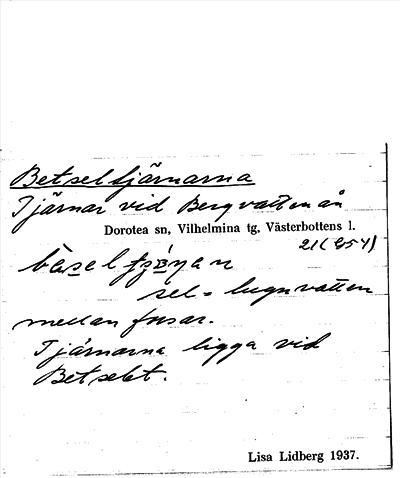 Betseltjärnarna
Tjärnar vid Bergvattenån
Dorotea sn, Vilhelmina tg, Västerbottens l.
21 (854)
sel = lugnvatten
mellan forsar.
Tjärnarna ligga vid
Betselet.
Lisa Lidberg 1937.